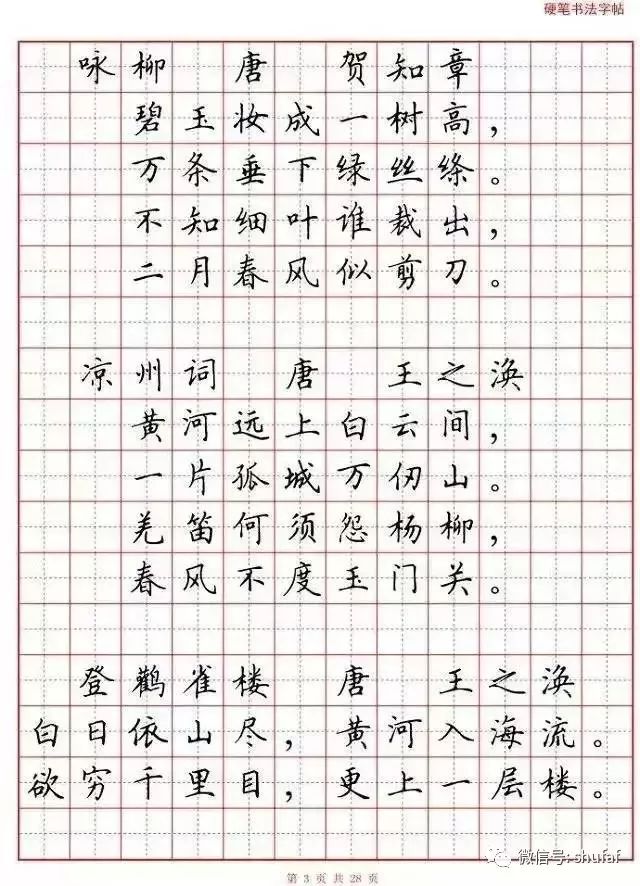 硬笔书法字帖
咏柳 唐 贺知章
碧玉妆成一树高，
万条垂下绿丝绦。
不知细叶谁裁出，
二月春风似剪刀。
凉州词 唐 王之涣
黄河远上白云间，
一片孤城万仞山。
羌笛何须怨杨柳，
春风不度玉门关。
登鹳雀楼 唐 王之涣
白日依山尽，黄河入海流。
欲穷千里目，更上一层楼。
微信号: shufaf
第 3 页 共 28 页